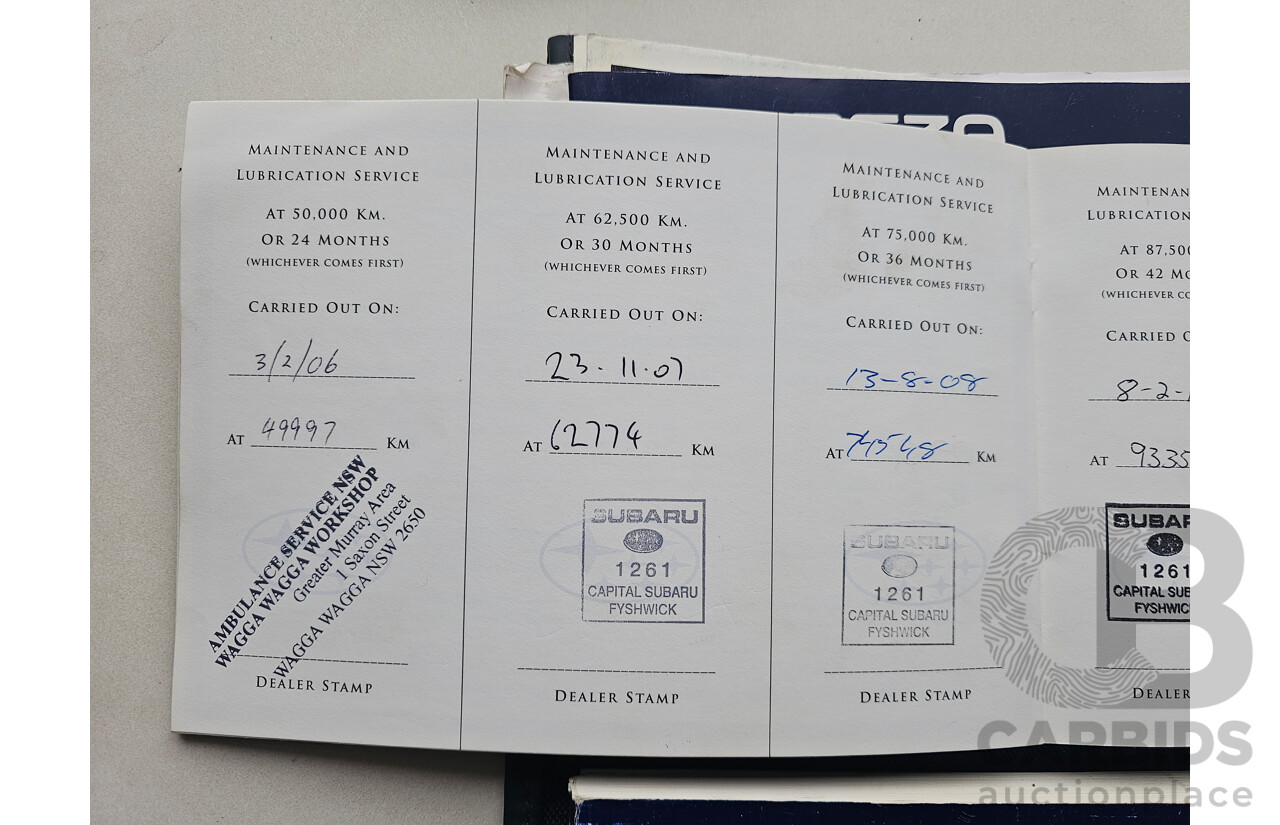 MAINTENANCE AND
LUBRICATION SERVICE
AT 50,000 KM.
OR 24 MONTHS
(WHICHEVER COMES FIRST)
CARRIED OUT ON:
3/2/06
AT 49997 KM
AMBULANCE SERVICE NSW
WAGGA WAGGA WORKSHOP
Greater Murray Area
1 Saxon Street
WAGGA WAGGA NSW 2650
DEALER STAMP
MAINTENANCE AND
LUBRICATION SERVICE
AT 62,500 KM.
OR 30 MONTHS
(WHICHEVER COMES FIRST)
CARRIED OUT ON:
23.11.07
AT 62774 KM
SUBARU
1261
CAPITAL SUBARU
FYSHWICK
DEALER STAMP
MAINTENANCE AND
LUBRICATION SERVICE
AT 75,000 KM.
OR 36 MONTHS
(WHICHEVER COMES FIRST)
CARRIED OUT ON:
13-8-08
AT KM
SUBARU
1261
CAPITAL SUBARU
FYSHWICK
DEALER STAMP
MAINTENAN
LUBRICATION
AT 87,50
OR 42 MO
(WHICHEVER CO
CARRIED O
8-2-
AT 9335
SUBAR
1261
CAPITAL SUB
FYSHWIC
DEALER
CARBIDS
auctionplace